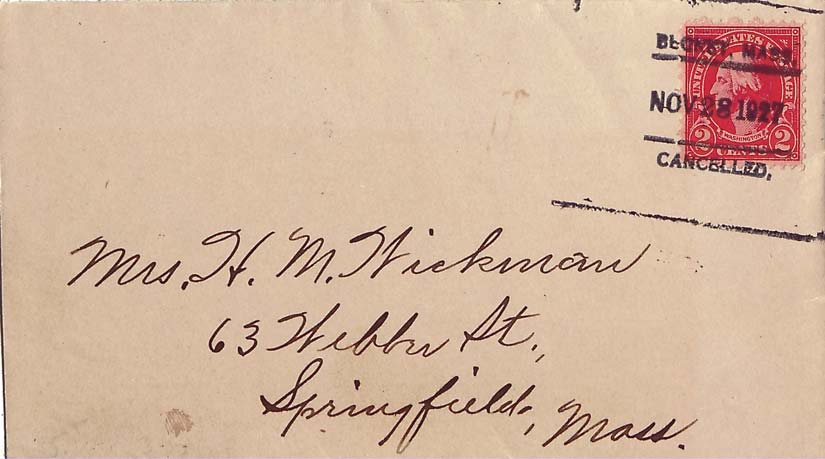 MASS.
UNITED STATES POSTAGE
NOV 28 1927
WASHINGTON
2 CENTS 2
CANCELLED.
Mrs. H. M. Wickman
63 Webber St.,
Springfield, Mass.